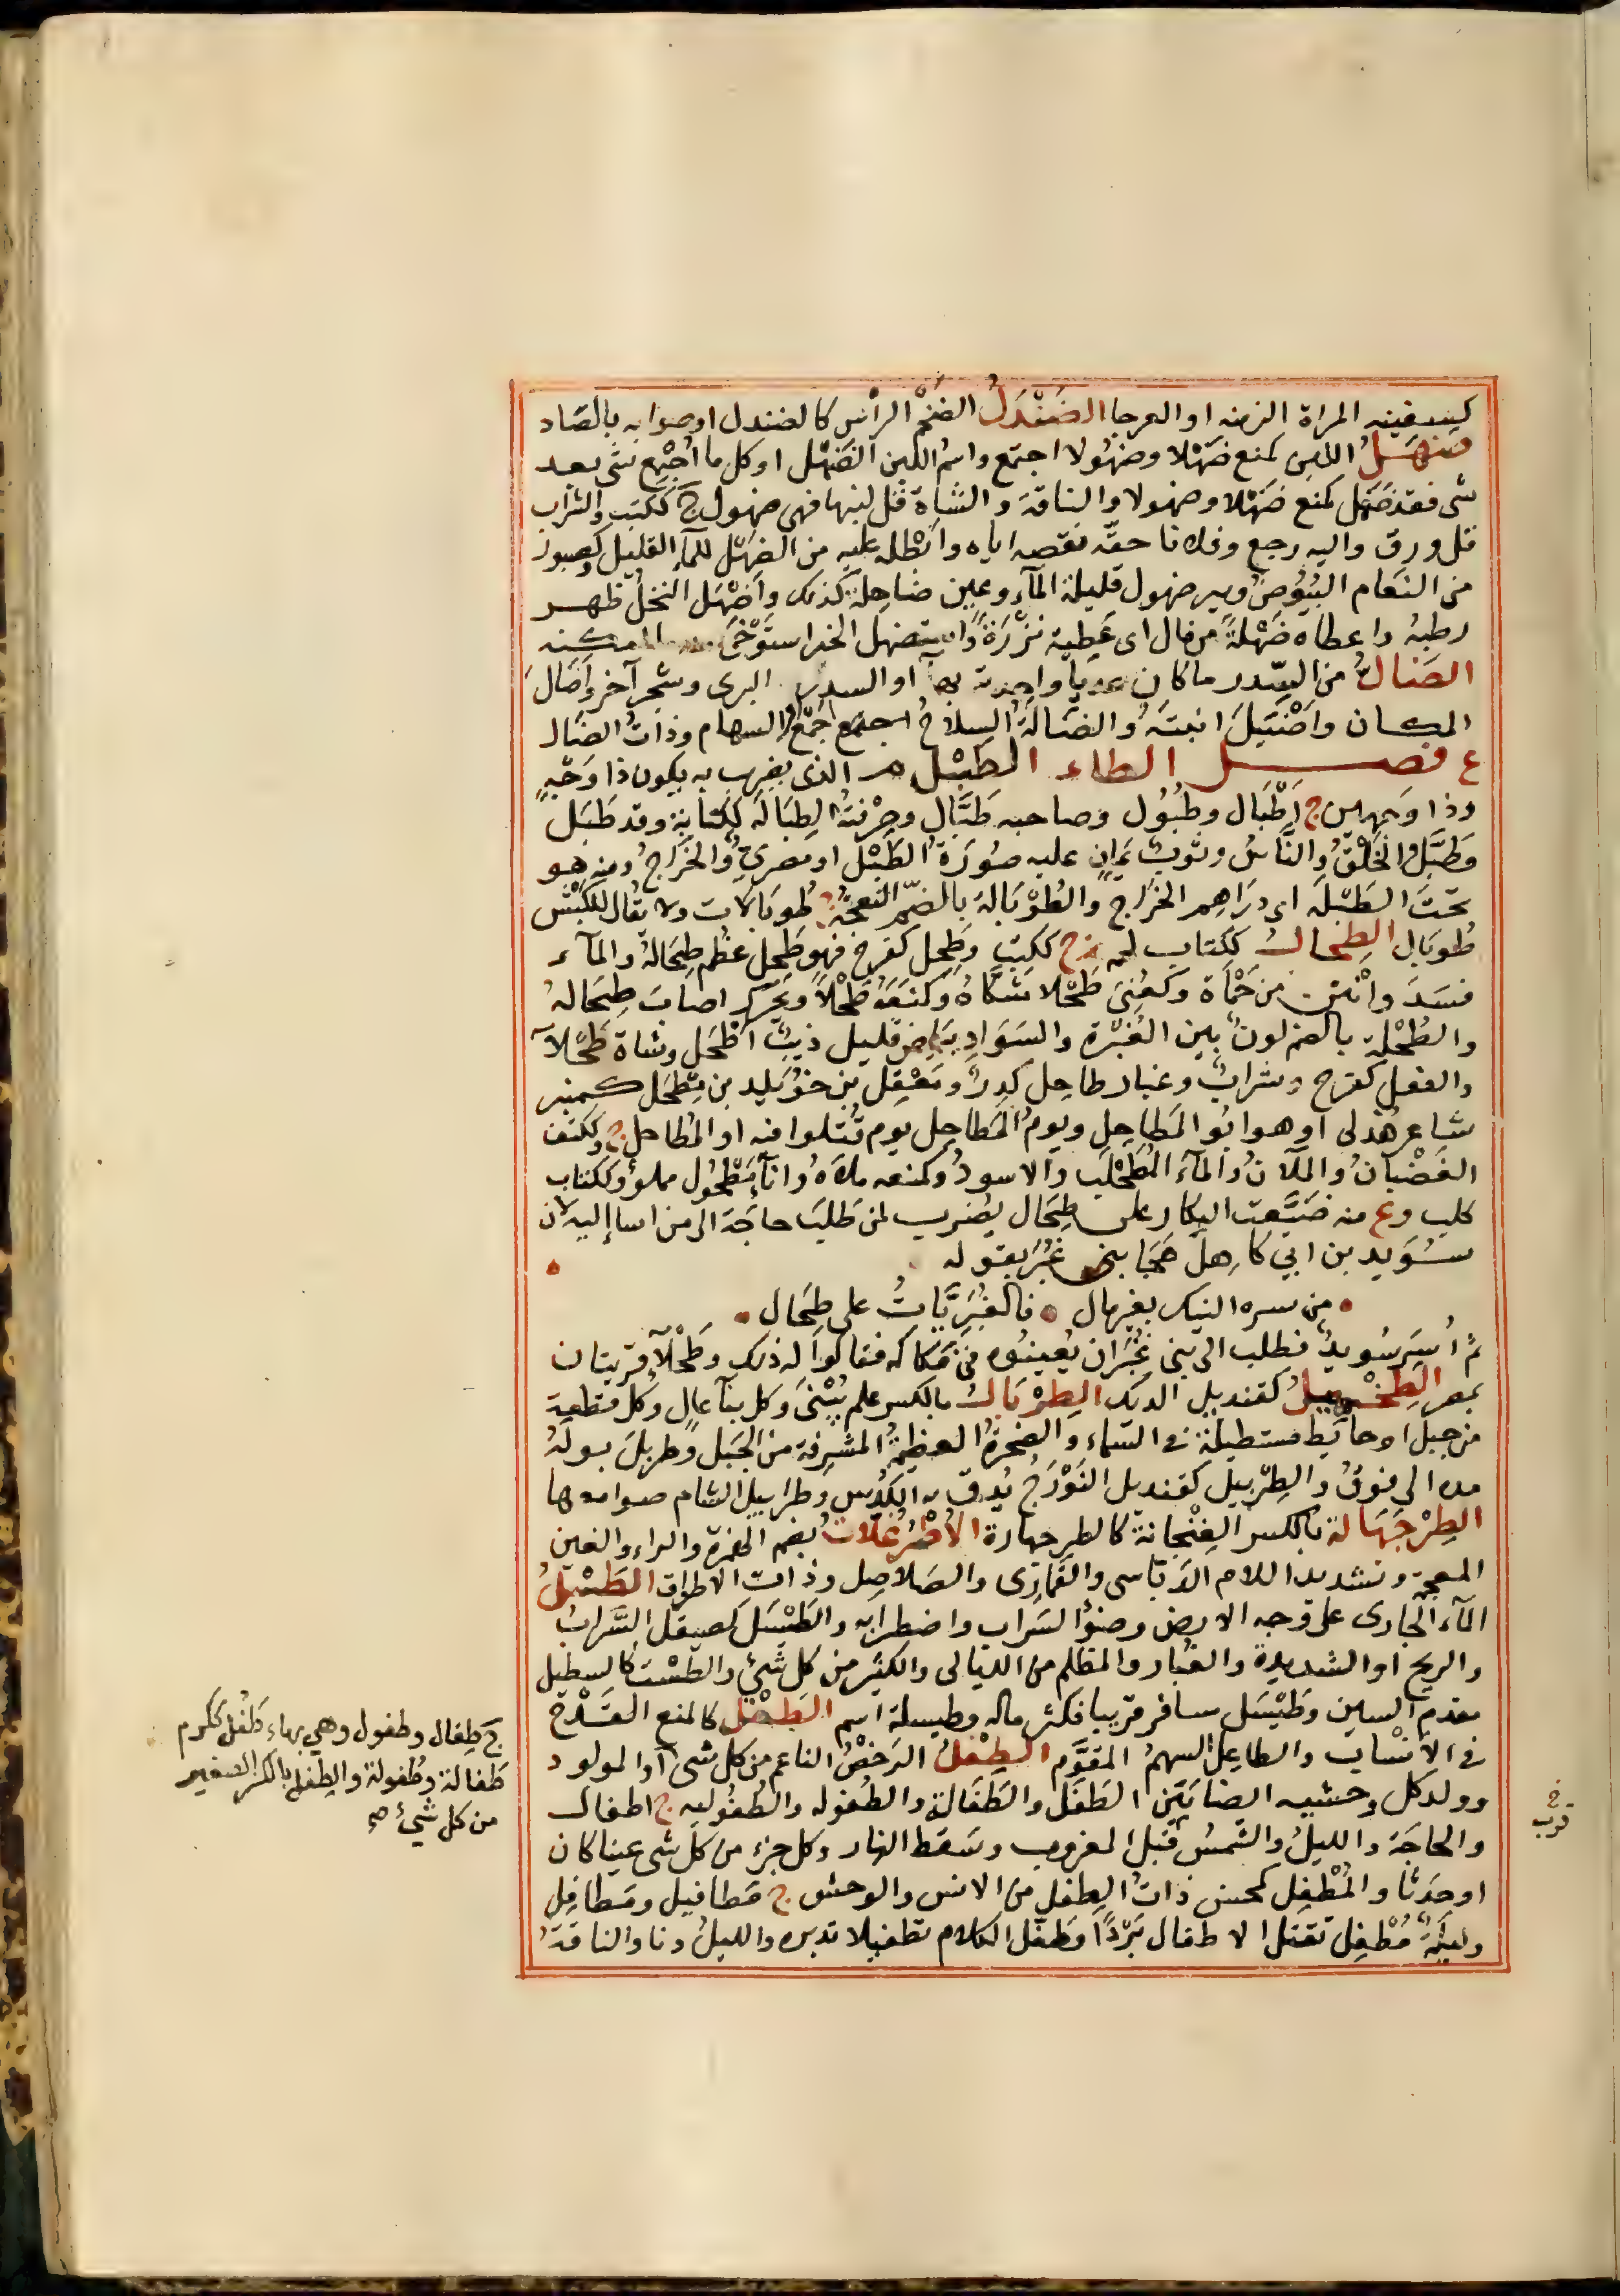 كسفينه المراة الزمنه او العرجا الضَنْدَلُ الضخم الرأس كالصندل او صوابه بالصاد
ضَهَلَ اللبن كمنع ضَهْلا وضهُولا اجتمع واسم اللبن الضَهْل او كل ما اجْتمع شى بعد
شى فقد ضَهَل كمنع ضَهْلا وضهولا والناقة والشاة قل لبنها فهى ضهول ج ككتب والشراب
قل ورق واليه رجع وفلانا حقّه نقصه اياه وابْطله عليه من الضهْل للمآء القليل وكصبور
من النَعَام البَيُوض وبير ضهول قليلة المآء وعين ضاحلة كذلك واَضْهَل النخلُ ظهر
رطبه واعطاه ضَهْلة من مال اى عَطِية نَزْرَة واستضهل الخبر استَوْخَى ما امكنه
الضَالُ من السِّدر ما كان عِذيا واحدته بهآ او السدر البرى وشجر آخر واَضَال
المكان واَضْيَلَ انبته والضَالَةُ السِلاحُ اجمع او السهام وذات الضَال
ع فصل الطاء الطَبْل م الذى يضرب به يكون ذا وَجْهٍ
وذا وجهين ج اَطْبَال وطُبُول وصاحبه طَبَّال وحِرْفتُه الطِبَالَة ككتابة وقد طَبَل
وطَبَّلَ والخَلْقُ والنَّاسُ وثوبٌ يَمانٍ عليه صُورَة الطَبْل او مصرى والخَرَاجُ ومنه هو
تحت الطَبْلَة اى دَرَاهِم الخراج والطُوْبَالة بالضمّ النعجة ج طُوبَالات ولا يقال للكَبْش
طُوبَال الطِحالُ ككتاب لحمة م ج ككُتب وطَحِلَ كفرح فهو طَحِل عظم طِحَالُه والمآء
فسَدَ وانْتن من حَمْاة وكعُنِىَ طَحْلا شكَاهُ وكمَنَعَه طَحْلاً ويحَرّك اصاب طِحَالهُ
والطُحْلة بالضم لونٌ بين الغُبْرة والسَوَادِ ببَياض قليل ذيبٌ اَطْحَل وشاة طَحْلآ
والفعل كفرح وشرابٌ وغبار طاحل كدرٌ ومَعْقِل بن خوَيْلد بن مِطْحَل كمنبر
شاعر هُذَلى او هو ابو المَطَاحِل ويومُ المَطاحِل يوم قُتلوا فيه او المَطاحل ع وككتف
الغَضْبانُ والملآنُ والمآء المُطَحْلِب والاسودُ وكمنعه ملآهُ وانآء مَطْحُول مملوٌ وككتاب
كلب وع منه ضَيَّعتِ البِكار على طِحَال يُضرب لمن طَلبَ حاجَة الى من اسا اليه لان
سُوَيد بن ابى كاهل هَجَا بنى غُبَر بقوله
من سره النيك بغير مال فالغُبَريَّاتُ على طِحَال
ثم اُسِرَ سُويدٌ فطلب الى بَنى غُبَر ان يُعِينُوه فى فَكاكه فقالوا له ذلك وطَحْلآ قريتان
بمصر الطِخْمِيلُ كقنديل الديك الطِرْبَالُ بالكسر علم يُبْنَى وكل بنآ عالٍ وكل قطعة
من جبل او حايط مستطيلة فى السماء والصخرةُ العظيمةُ المشرفة من الجبَل وطربلَ بولهُ
مده الى فوقُ والطِرْبيل كقنديل النَوْرَجُ يُدق به الكُدْس وطرابيل الشام صوامعها
الطِرْجَهَالة بالكسر الفِنْجانة كالطرجهارة الاُطْرُغلات بضم الهمزة والراء والغين
المعجمة وتشديد اللام الدَبَاسى والقَمَارِى والصَلاصِل وذات الاطواق الطَسْلُ
المآء الجارى على وجه الارض وضوْءُ السَراب واضطرابه والطَيْسَل كصيقل السَّراب
والريح او الشديدة والغُبار والمظلم من الليالى والكثير من كل شَىْ والطَسْت كالسطل
مقدم السين وطَيْسَل سافر قريبا فكثر ماله وطيسلة اسم الطَعْل كالمنع القَدْحُ
فى الاَنْساب والطاعِلُ السهمُ المقوَّم الطَفْلُ الرَخْصُ الناعم من كل شى او المولود
وولد كل وحشيه ايضا بَيّن الطَفَل والطَفَالة والطُفوله والطُفوليه ج اطفال
والحاجة والليلُ والشمسُ قبل الغروب وسَقط النار وكل جزء من كل شى عينا كان
او حدَثا والمُطْفِل كمحسن ذات الطِفل من الانس والوحش ج مَطافيل ومَطافِل
وليلةٌ مُطْفِل تقتل الاطفال بَرْدًا وطَفَّل الكلام تطفيلا تدبره والليلُ دنا والناقةُ
ج طِفال وطفول وهى بهاء طَفُل ككرم
طَفالة وطُفولة والطِفل بالكسر الصغير
من كل شىء صح
قرب